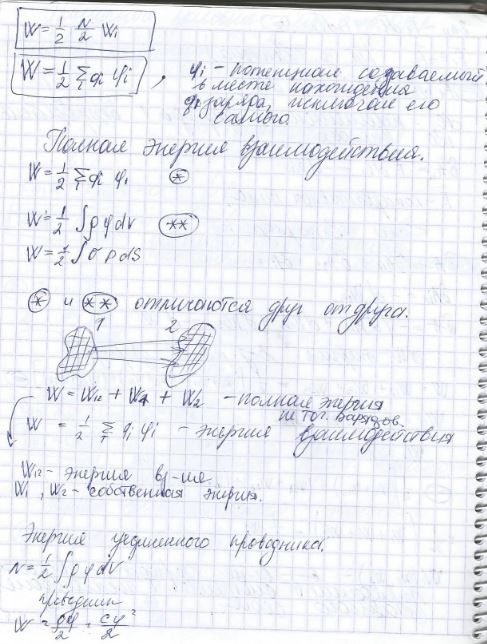 W = 1/2 N/2 Wi
W = 1/2 Σ qi φi , φi – потенциал создаваемый
в месте нахождения
qi заряда, исключая его
самого
Полная энергия взаимодействия.
W = 1/2 Σ qi φi (*)
W = 1/2 ∫ρφdV (**)
W = 1/2 ∫σ φ dS
(*) и (**) отличаются друг от друга.
1 2
W = W12 + W1 + W2 – полная энергия
не точ. зарядов.
W = 1/2 Σ qi φi – энергия взаимодействия
W12 – энергия вз-ия
W1, W2 – собственная энергия.
Энергия уединенного проводника.
W = 1/2 ∫ρ φ dV
проводник
W = qφ/2 = cφ²/2